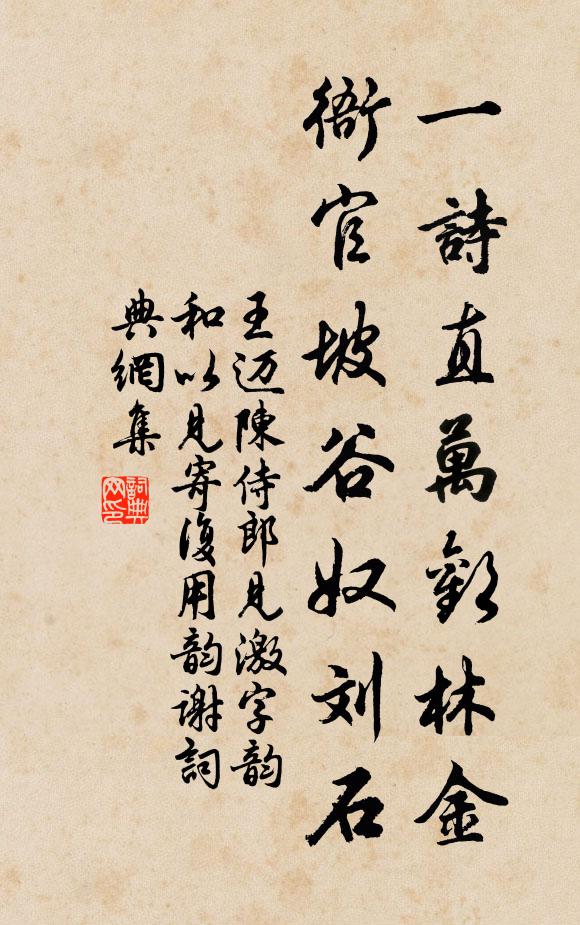 一詩直萬雞林金
衙官坡谷奴刘石
王迈陳侍郎見激字韵
和以見寄復用韵謝詞
典網集
詞典网印